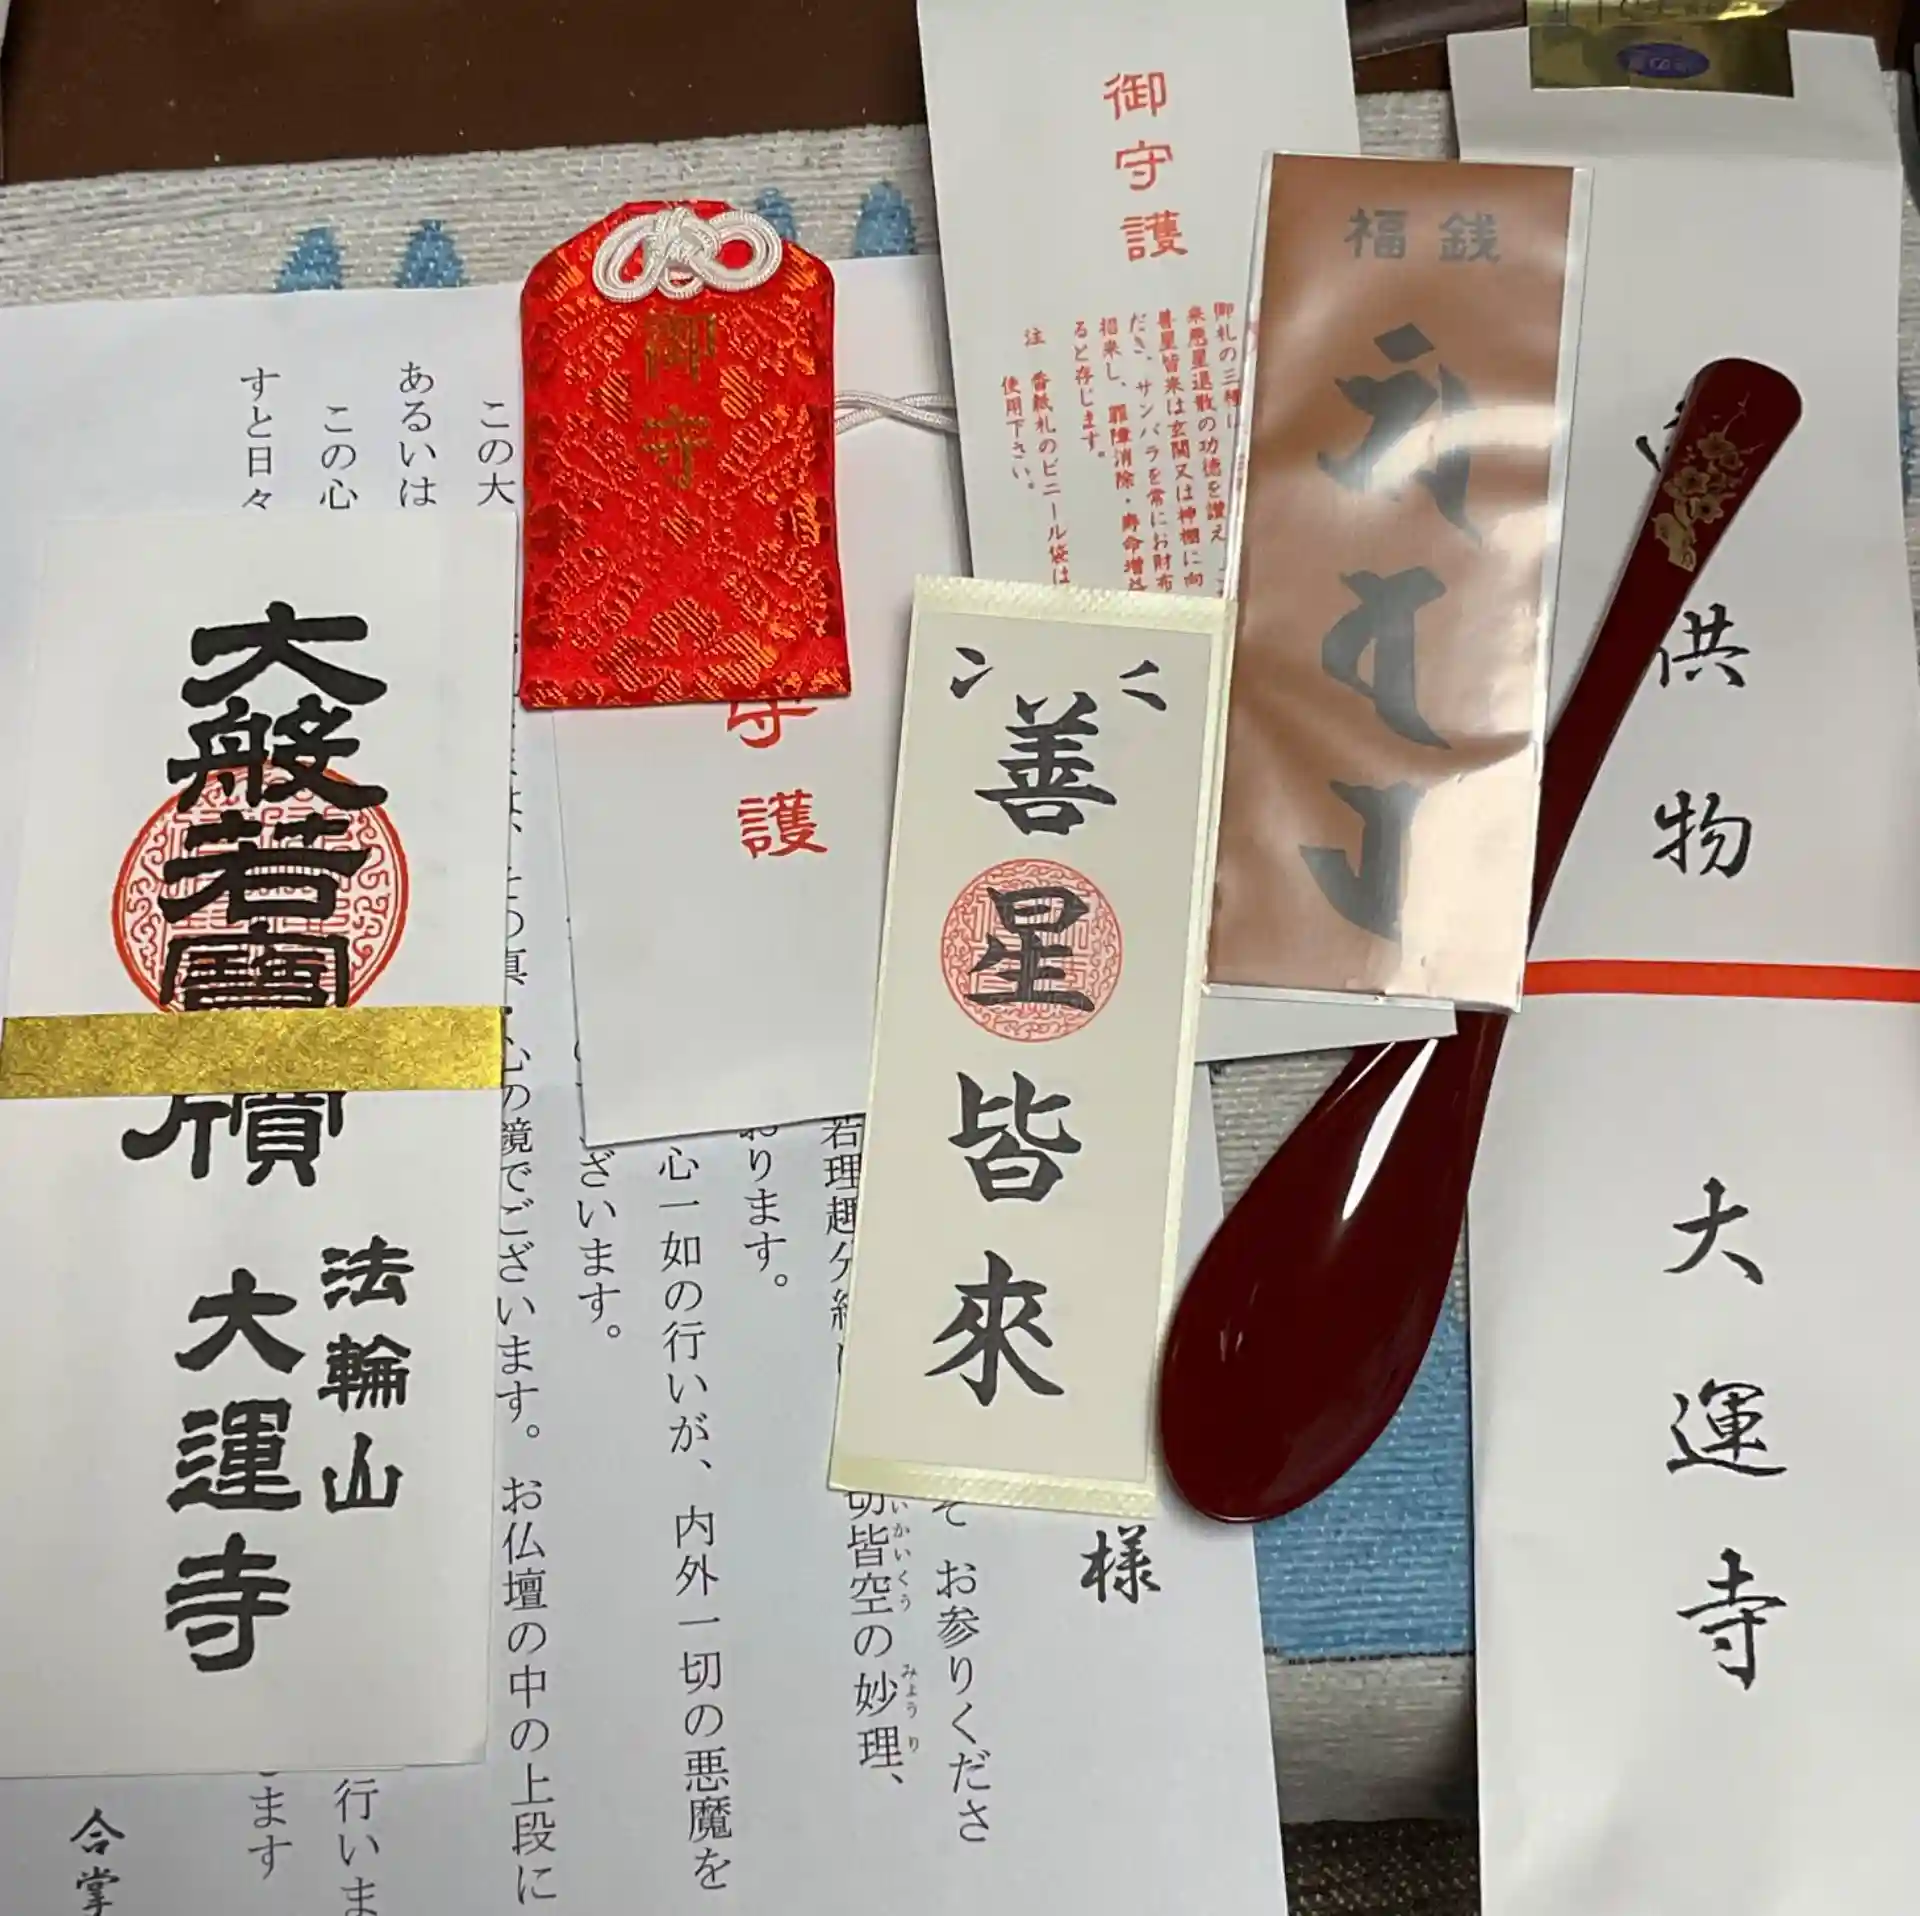 御守護
御札の三種
来悪星退散の功徳を讃え
善星皆来は玄関又は神棚に向
だき、サンバラを常にお財布
招来し、罪障消除・寿命増益
ると存じます。
注 香紙札のビニール袋は
使用下さい。
福銭
供物
大運寺
御守
守護
善星皆來
大般若寶牘
法輪山
大運寺
様
そ お参りくださ
切皆空の妙理、
いかいくう
みょうり
若理趣分経
おります。
心一如の行いが、内外一切の悪魔を
ざいます。
心の鏡でございます。お仏壇の中の上段に
この大
あるいは
この心
すと日々
行いま
ます
合掌